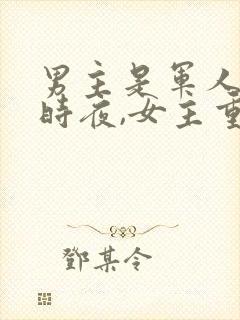 男主是軍人
時夜,女主重
鄧某令